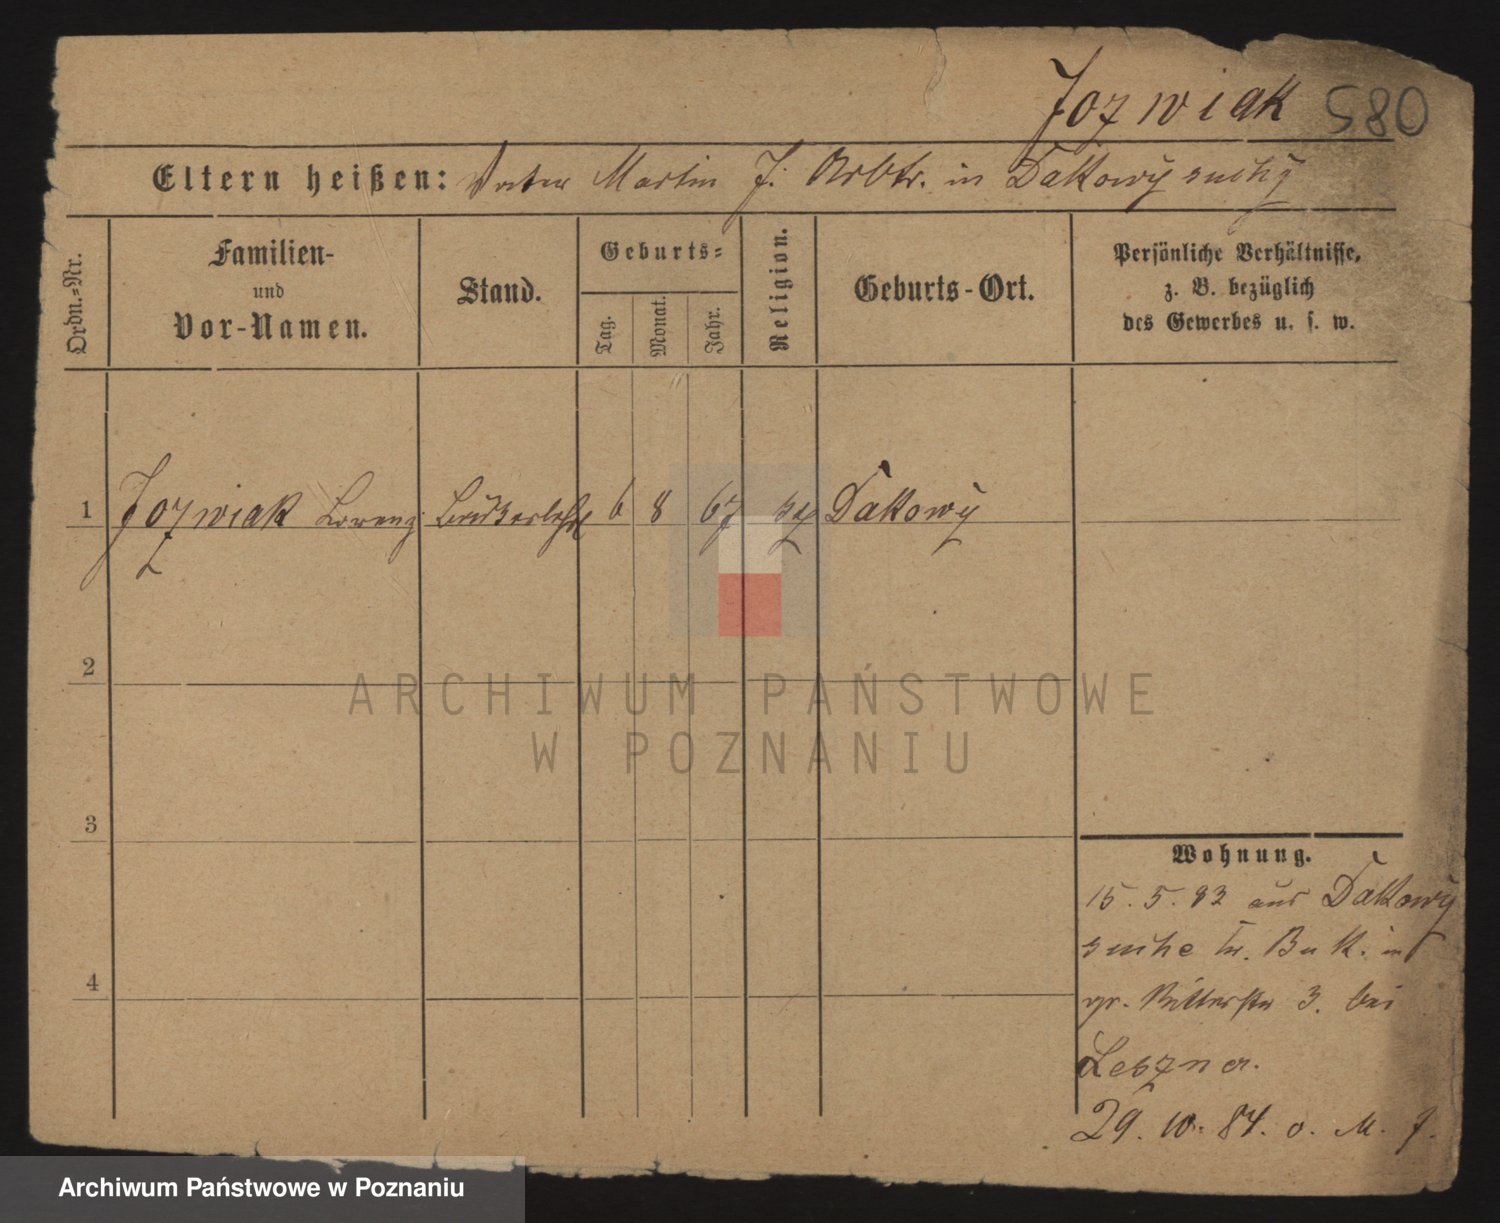 Jozwiak 580
Eltern heißen: Vater Martin J. Arbtr. in Dakowy suchy
Ordn.-Nr.
Familien-
und
Vor-Namen.
Stand.
Geburts-
Tag.
Monat.
Jahr.
Religion.
Geburts-Ort.
Persönliche Verhältnisse,
z. B. bezüglich
des Gewerbes u. s. w.
1 Jozwiak Lorenz 6 8 67 Dakowy
2
3
4
Wohnung.
15. 5. 83 aus Dakowy
suche Kr. Buk. in
gr. Ritterstr 3. bei
Leszner.
29. 10. 84. o. M. J.
ARCHIWUM PAŃSTWOWE
W POZNANIU
Archiwum Państwowe w Poznaniu